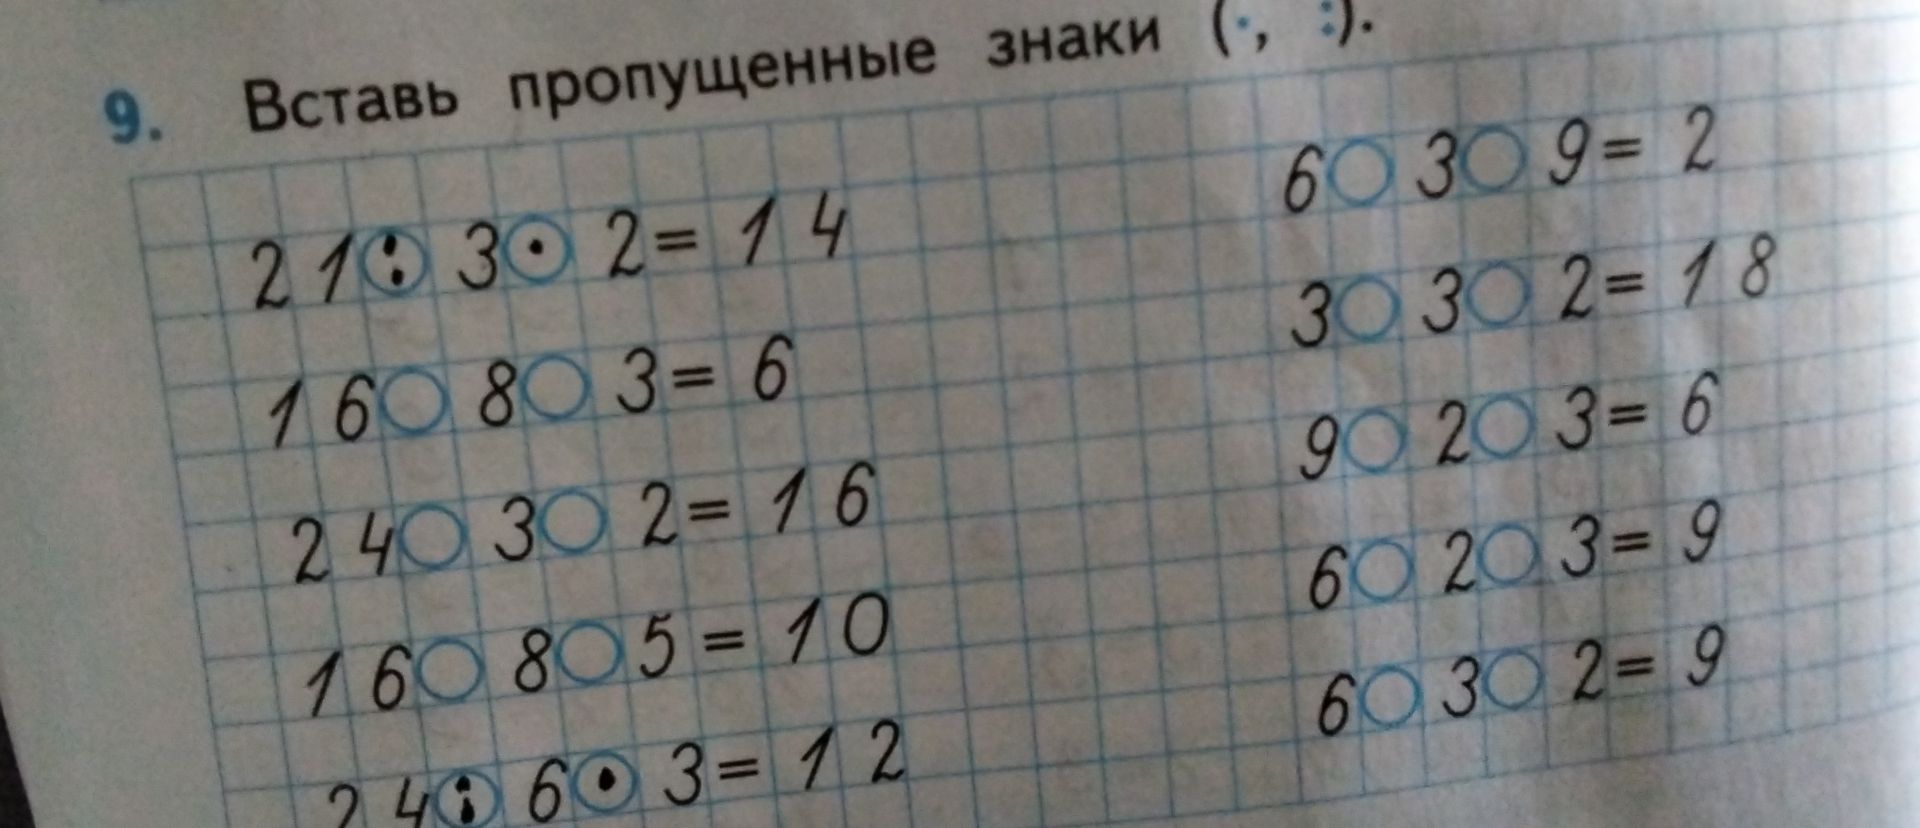 9. Вставь пропущенные знаки (·, :).
21 : 3 · 2 = 14
16 ○ 8 ○ 3 = 6
24 ○ 3 ○ 2 = 16
16 ○ 8 ○ 5 = 10
24 : 6 · 3 = 12
6 ○ 3 ○ 9 = 2
3 ○ 3 ○ 2 = 18
9 ○ 2 ○ 3 = 6
6 ○ 2 ○ 3 = 9
6 ○ 3 ○ 2 = 9